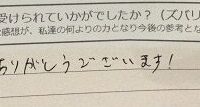 受けられていかがでしたか?(ズバリ
感想が、私達の何よりの力となり今後の参考とな
ありがとうございます!